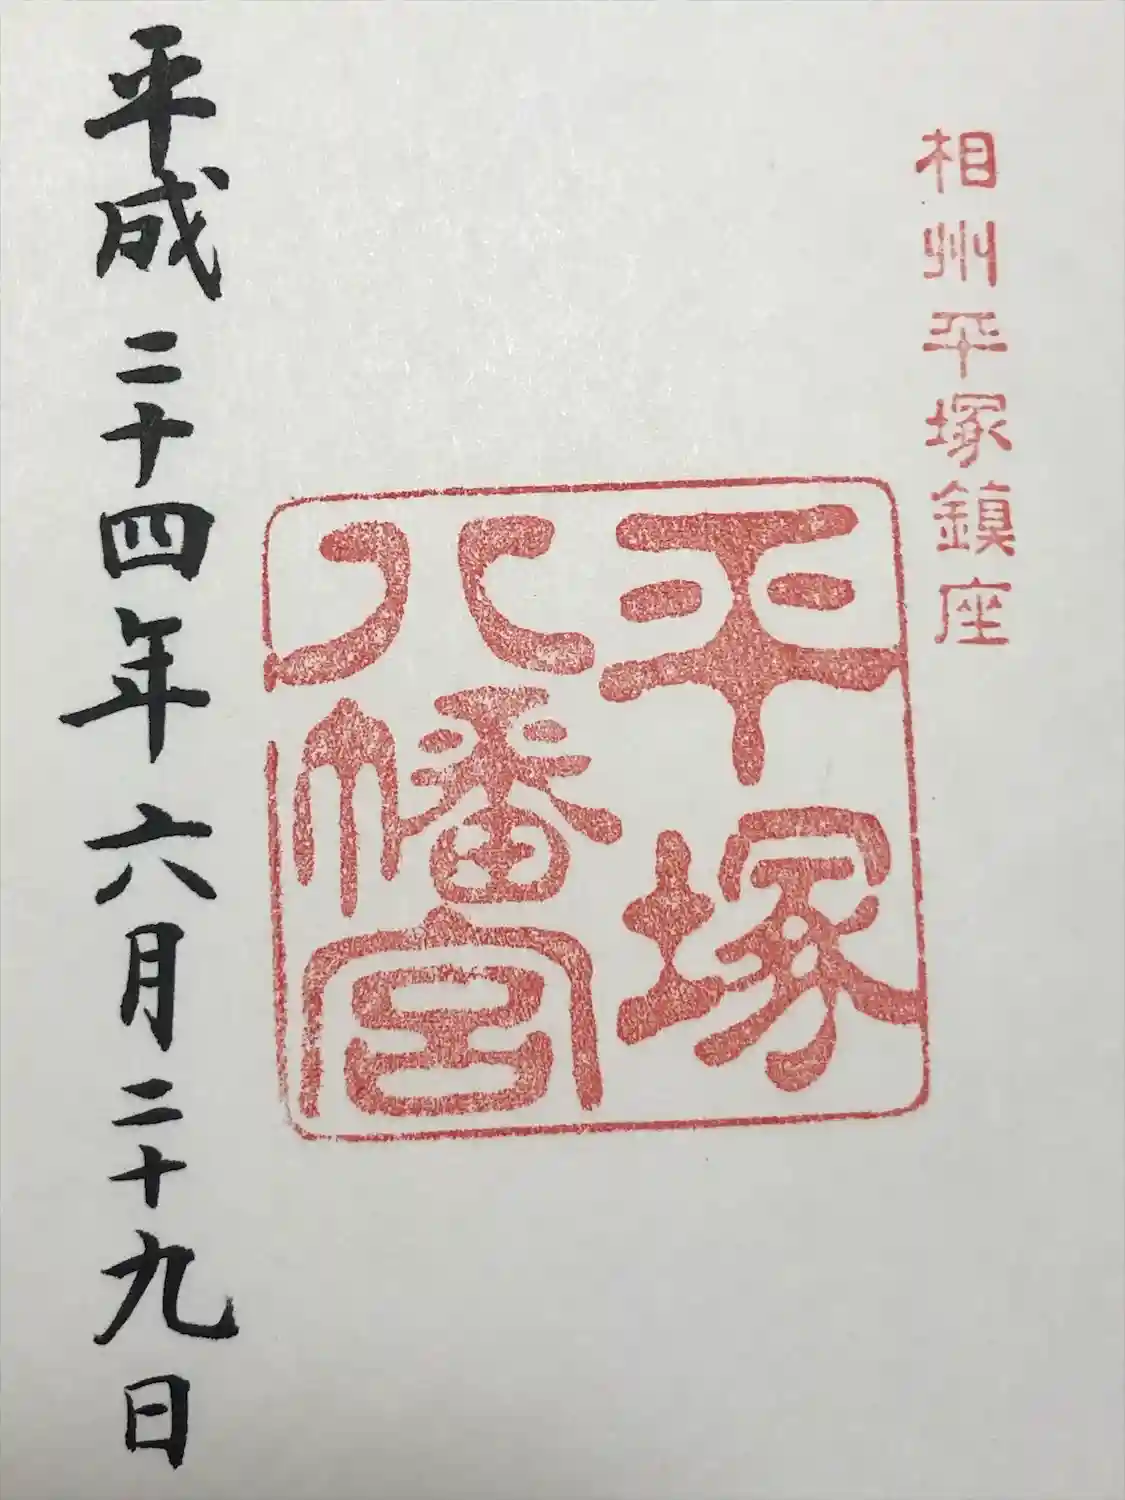 相州平塚鎮座
平塚
八幡宮
平成二十四年六月二十九日